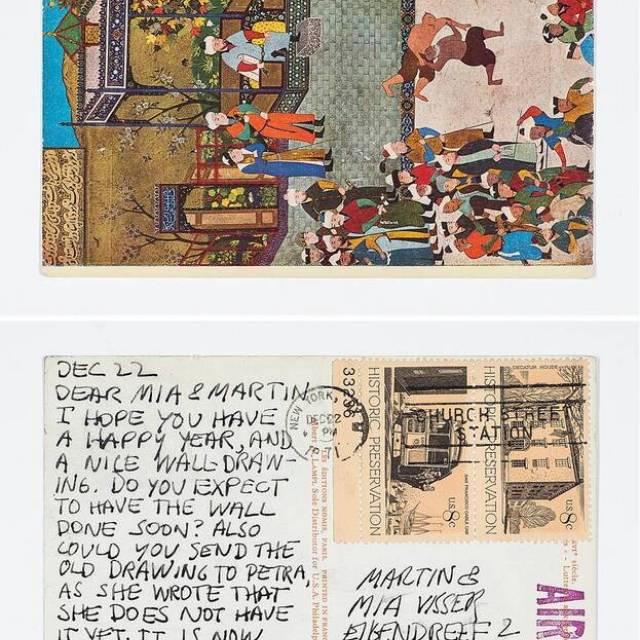 DEC 22
DEAR MIA & MARTIN
I HOPE YOU HAVE
A HAPPY YEAR, AND
A NICE WALL-DRAW-
ING. DO YOU EXPECT
TO HAVE THE WALL
DONE SOON? ALSO
COULD YOU SEND THE
OLD DRAWING TO PETRA,
AS SHE WROTE THAT
SHE DOES NOT HAVE
IT YET. IT IS NOW
NEW YORK,
DEC 22
PM
CHURCH STREET
STATION
33296
HISTORIC PRESERVATION
US 8c
HISTORIC PRESERVATION
DECATUR HOUSE
US 8c
LES ÉDITIONS NOMIS, PARIS PRINTED IN FRANCE
Albert H. LAMPL Sole Distributor for U.S.A. Philadelp
XVIe siècle
MARTIN &
MIA VISSER
EIKENDREEF 2
AIR